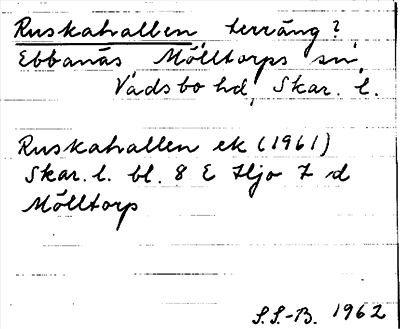 Ruskahallen, terräng?
Ebbanäs, Mölltorps sn,
Vadsbo hd, Skar. l.
Ruskahallen ek (1961)
Skar. l. bl. 8 E Hjo 7 d
Mölltorp
S.S.-B. 1962